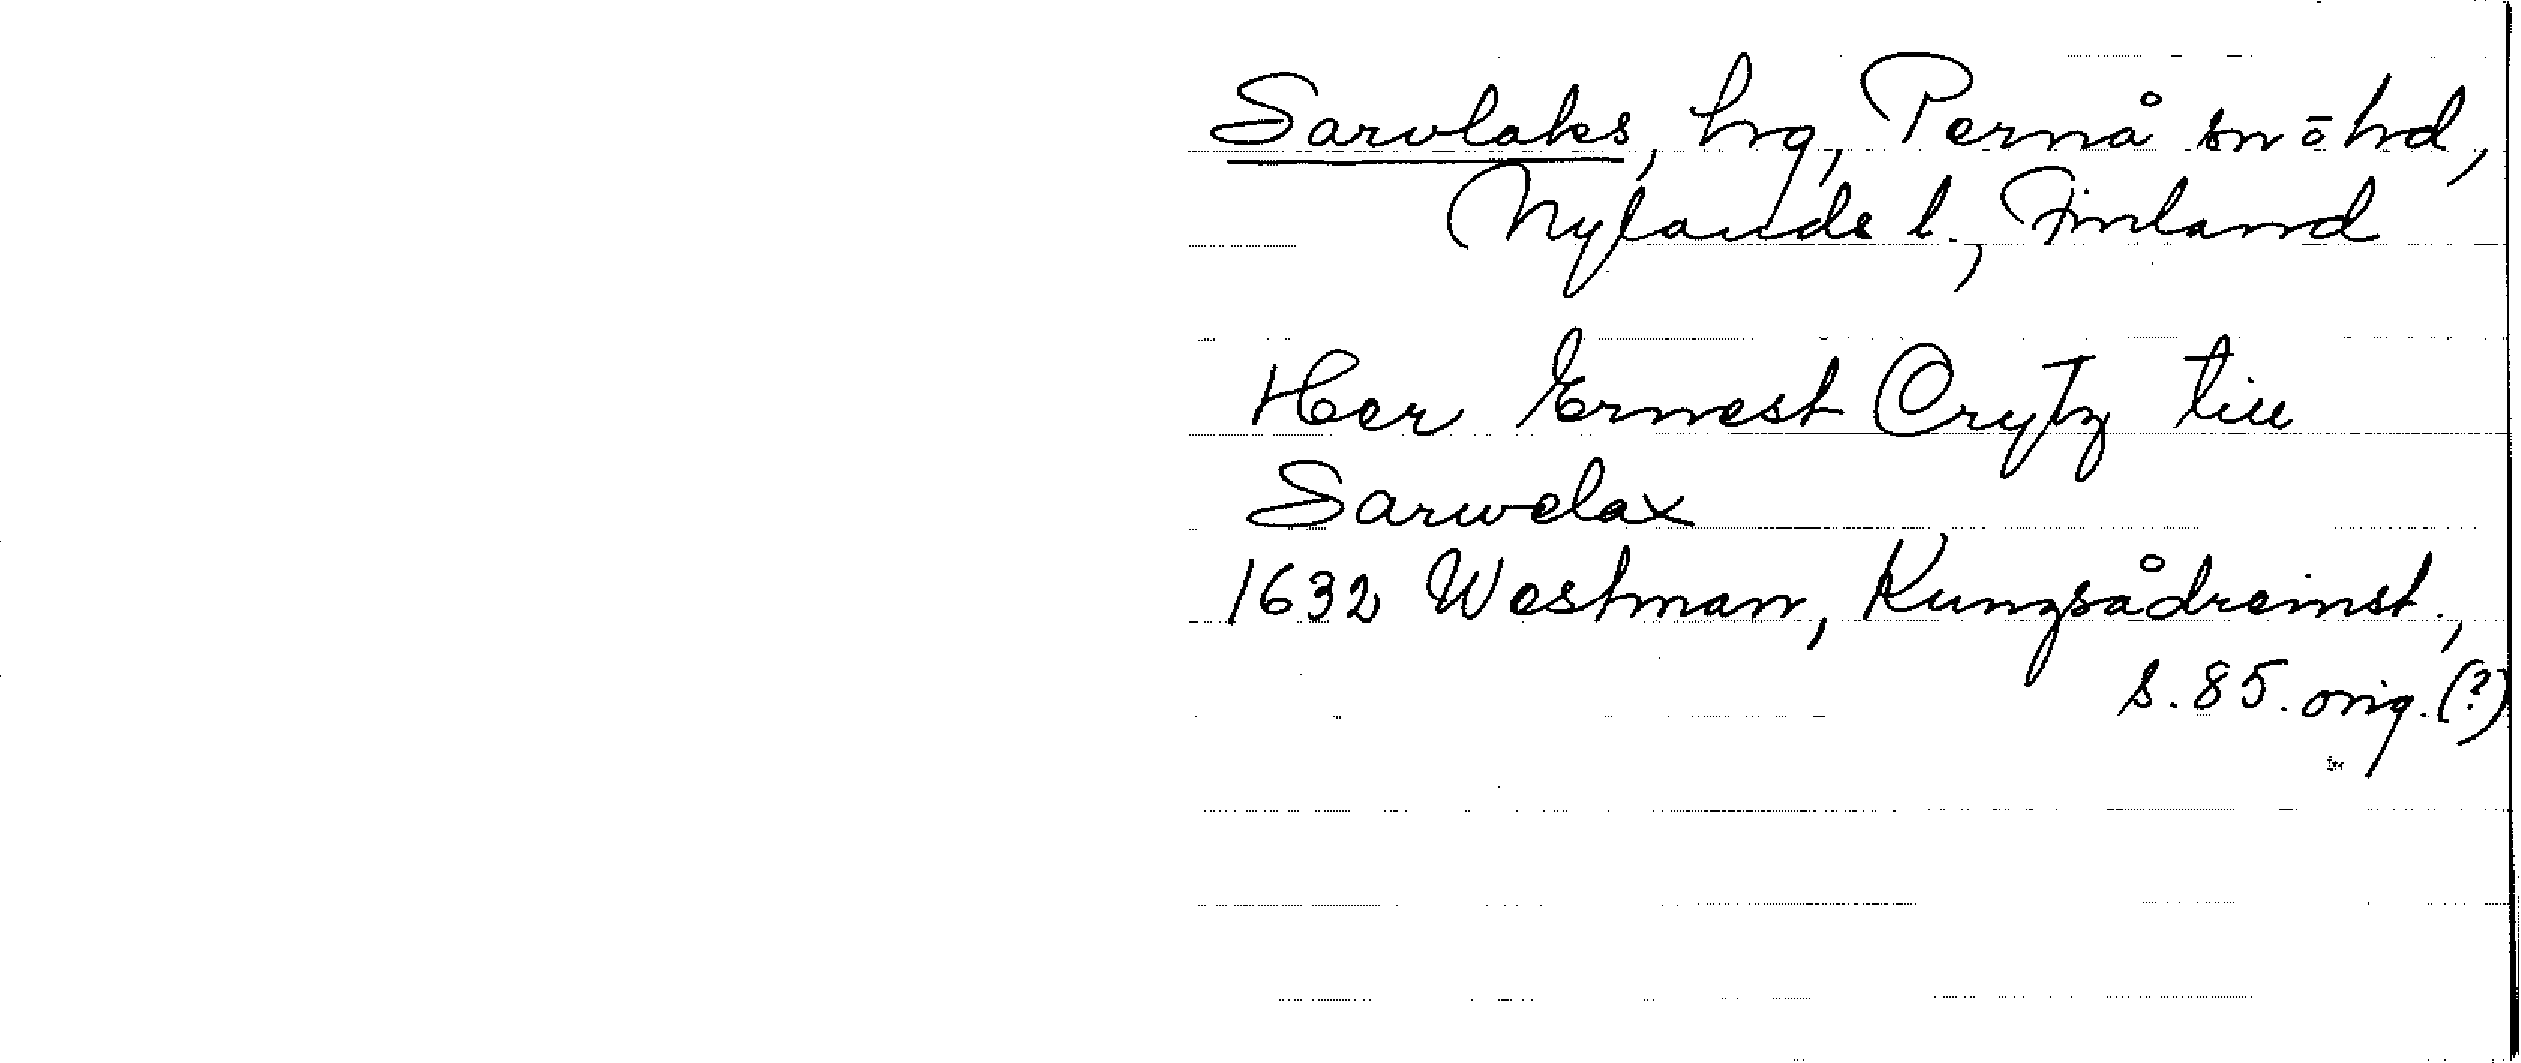 Sarvlaks, hrg, Pernå sn ō hd,
Nylands l., Finland
Her Ernest Crytz till
Sarwelax
1632 Westman, Kungsådreinst.,
s. 85. orig. (?)